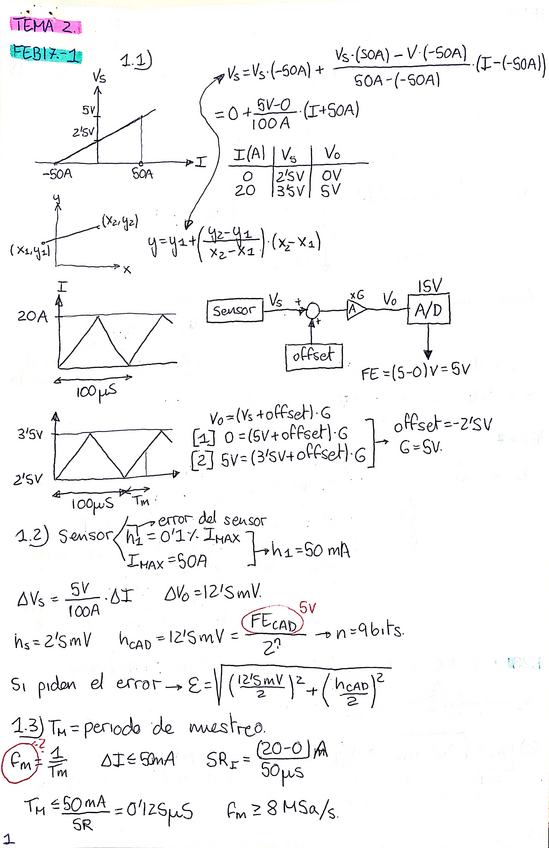 TEMA 2.
FEB17-1
1.1)
Vs = Vs·(-50A) + (Vs·(50A) - V·(-50A))/(50A - (-50A)) · (I - (-50A))
Vs
5V
2'5V
-50A 50A I
= 0 + (5V-0)/(100A) · (I+50A)
I(A) Vs Vo
0 2'5V 0V
20 3'5V 5V
y
(x1,y1) (x2,y2)
x
y = y1 + ((y2-y1)/(x2-x1)) · (x2-x1)
I
20A
100µS
Sensor Vs + xG A Vo 15V A/D
+
offset
FE = (5-0)V = 5V
3'5V
2'5V
100µS Tm
Vo = (Vs + offset)·G
[1] 0 = (5V + offset)·G
[2] 5V = (3'5V + offset)·G
offset = -2'5V
G = 5V.
1.2) Sensor
error del sensor
h1 = 0'1% IMAX
IMAX = 50A
h1 = 50 mA
ΔVs = 5V/100A · ΔI ΔVo = 12'5mV.
hs = 2'5mV hCAD = 12'5mV = FECAD/2? → n = 9bits.
5V
Si piden el error → ε = √((12'5mV/2)² + (hCAD/2)²)
1.3) TM = periodo de muestreo.
fm = 1/Tm ΔI ≤ 50mA SRI = (20-0)A/50µs
TM ≤ 50mA/SR = 0'125µS fm ≥ 8 MSa/s.
1